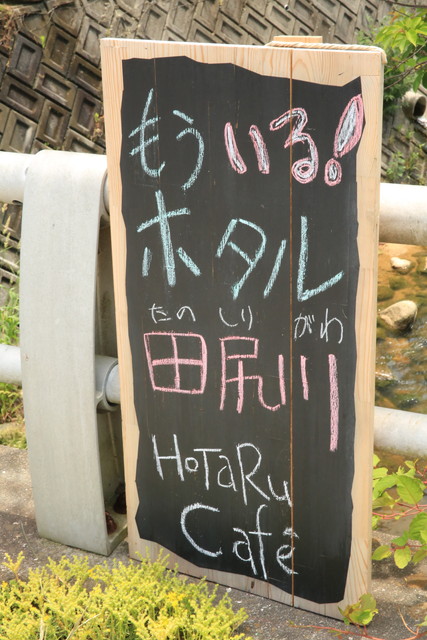 もういる!
ホタル
たの しり がわ
田尻川
HoTaRu
Cafê